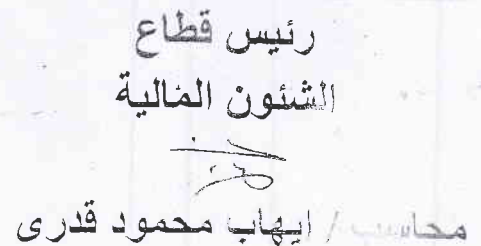 رئيس قطاع
الشئون المالية
محاسب / ايهاب محمود قدرى